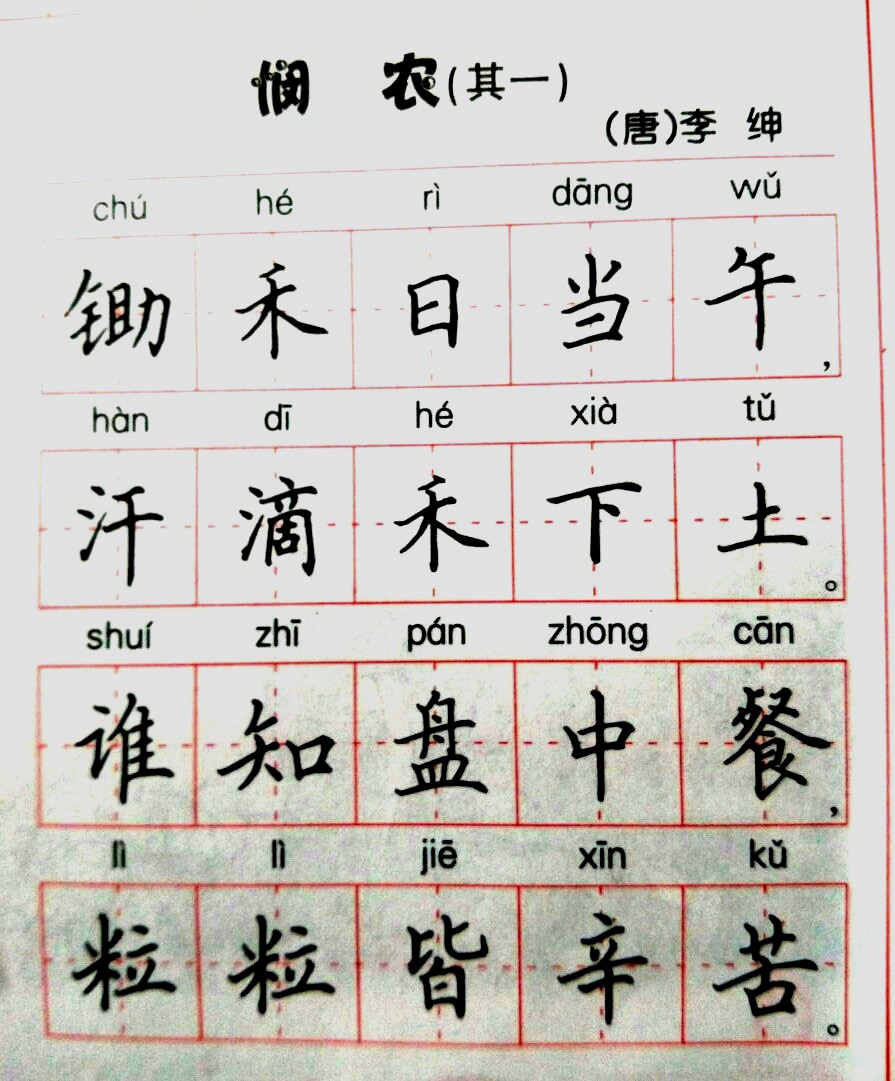 悯 农(其一)
(唐)李 绅
chú hé rì dāng wǔ
锄禾日当午,
hàn dī hé xià tǔ
汗滴禾下土。
shuí zhī pán zhōng cān
谁知盘中餐,
lì lì jiē xīn kǔ
粒粒皆辛苦。